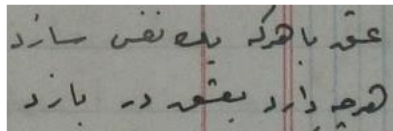 عشق با هرکه یک نفس سازد
هرچه دارد بعشق در بازد